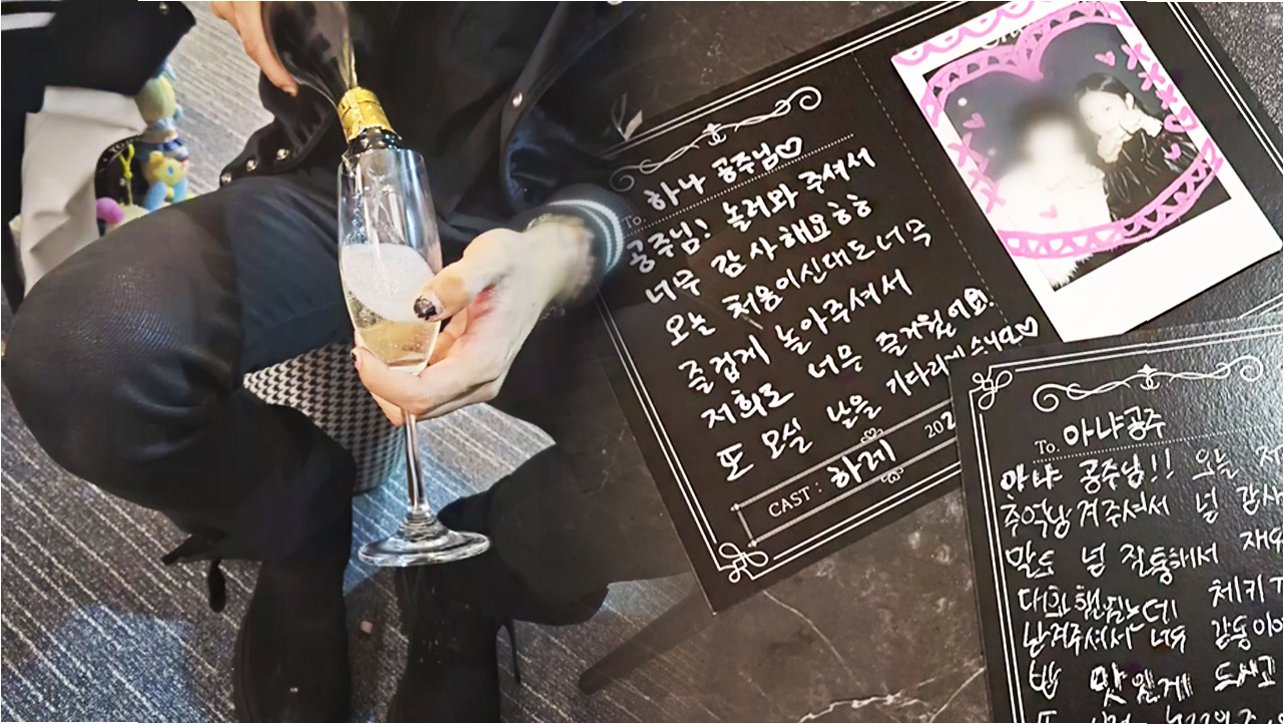 To. 하나 공주님♡
공주님! 놀러와 주셔서
너무 감사해요ㅎㅎ
오늘 처음이신대도 너무
즐겁게 놀아주셔서
저희도 너무 즐거웠어요
또 오실 날을 기다리께스니다♡
202
CAST : 하게
To. 아냐공주
아냐 공주님!! 오늘 저
추억남겨주셔서 넘 감사
말도 넘 잘통해서 재
대화 했는데 체키
남겨주셔서 너무 감동이
밥 맛있게 드시고
또